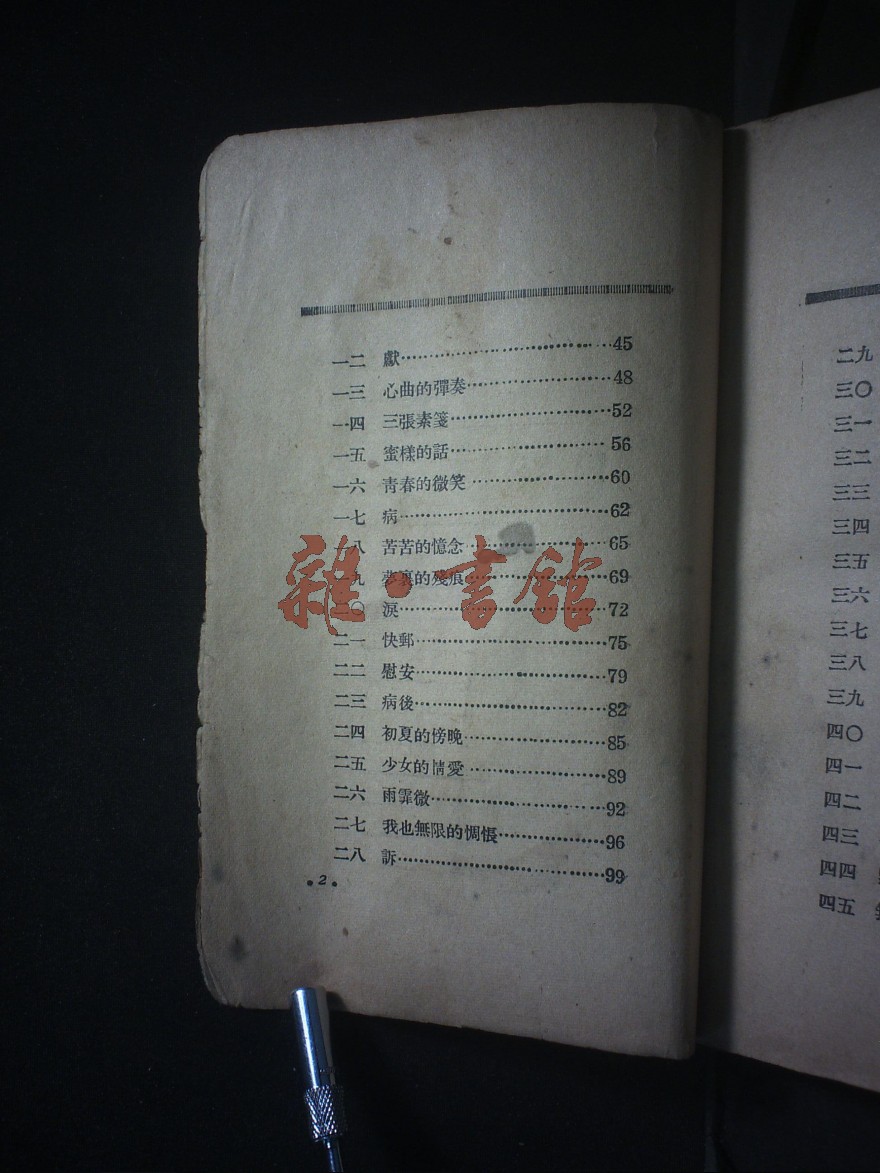 一二 獻 45
一三 心曲的彈奏 48
一四 三張素箋 52
一五 蜜樣的話 56
一六 靑春的微笑 60
一七 病 62
一八 苦苦的憶念 65
一九 夢裏的殘痕 69
二〇 淚 72
二一 快郵 75
二二 慰安 79
二三 病後 82
二四 初夏的傍晚 85
二五 少女的情愛 89
二六 雨霏微 92
二七 我也無限的惆悵 96
二八 訴 99
•2•
雜·書館
二九
三〇
三一
三二
三三
三四
三五
三六
三七
三八
三九
四〇
四一
四二
四三
四四
四五